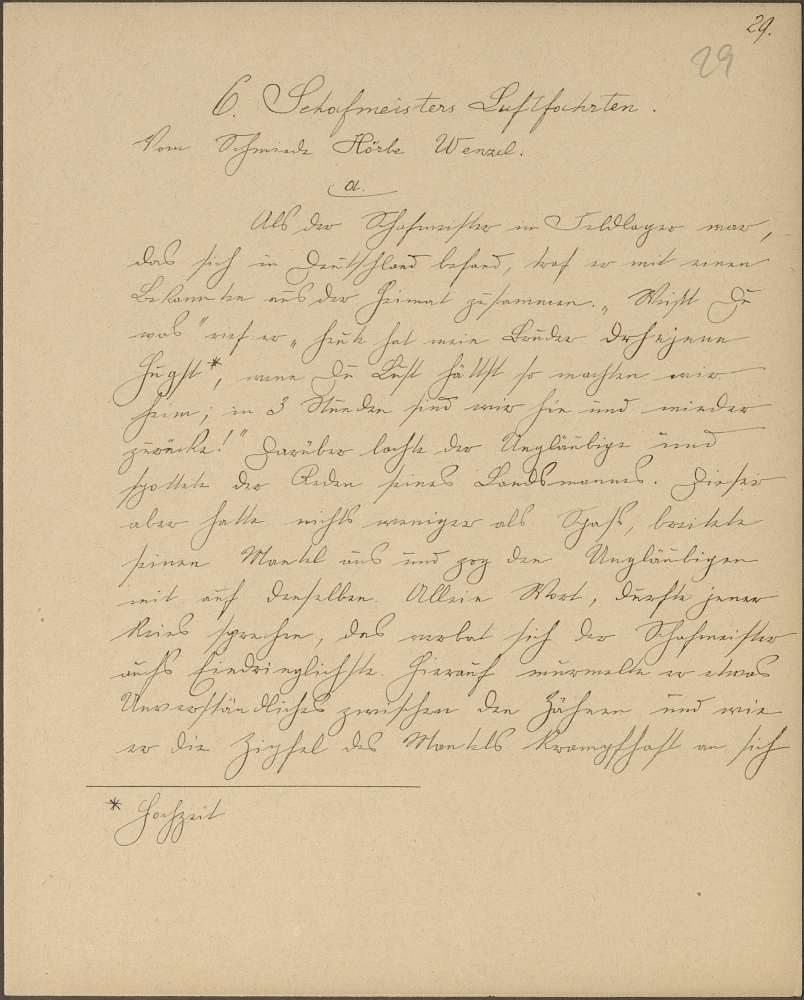 29.
29
6. Schafmeisters Luftfahrten.
Vom Schmiede Hörbe Wenzel.
a.
Als der Schafmeister im Feldlager war,
das sich in Deutschland befand, traf er mit einen
Bekannten aus der Heimat zusammen. „Weißt Du
was" rief er „heute hat mein Bruder drhejene
Hugst*, wenn Du Lust hättst so machten wir
heim; in 3 Stunden sind wir hin und wieder
zurücke!" Darüber lachte der Ungläubige und
spottete der Reden seines Landsmannes. Dieser
aber hatte nichts weniger als Spaß, breitete
seinen Mantel aus und zog den Ungläubigen
mit auf denselben. Allein Wort, durfte jener
keies sprechen, das verbat sich der Schafmeister
aufs Eindringlichste. Hierauf murmelte er etwas
Unverständliches zwischen den Zähnen und wie
er die Zipfel des Mantels krampfhaft an sich
* Hochzeit